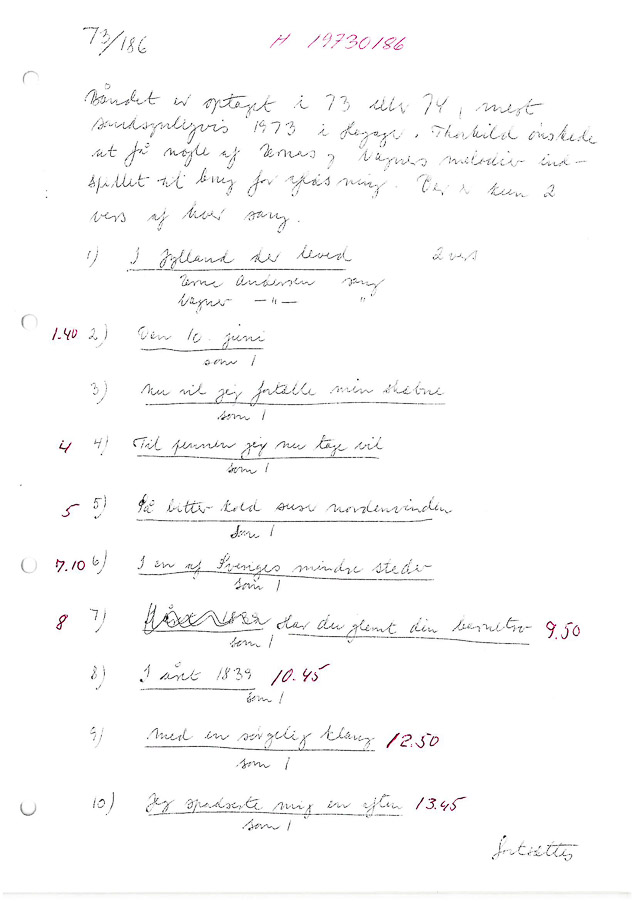 73/186 H 19730186
Båndet er optaget i 73 eller 74, mest
sandsynligvis 1973 i . Thorkild ønskede
at få nogle af Vernes og Vagners melodier ind-
spillet til brug for . Der er kun 2
vers af hver sang.
1) I Jylland der leved 2 vers
Verne Andersen sang
Vagner — " — "
1.40 2) Den 10. juni
som 1
3) Nu vil jeg fortælle min skæbne
som 1
4 4) Til pennen jeg nu tage vil
som 1
5 5) Så bitter kold suser nordenvinden
som 1
7.10 6) I en af Sveriges mindre steder
som 1
8 7) Har du glemt din barnetro 9.50
som 1
8) I året 1839 10.45
som 1
9) Med en sørgelig klang 12.50
som 1
10) Jeg spadserte mig en aften 13.45
som 1
fortsættes